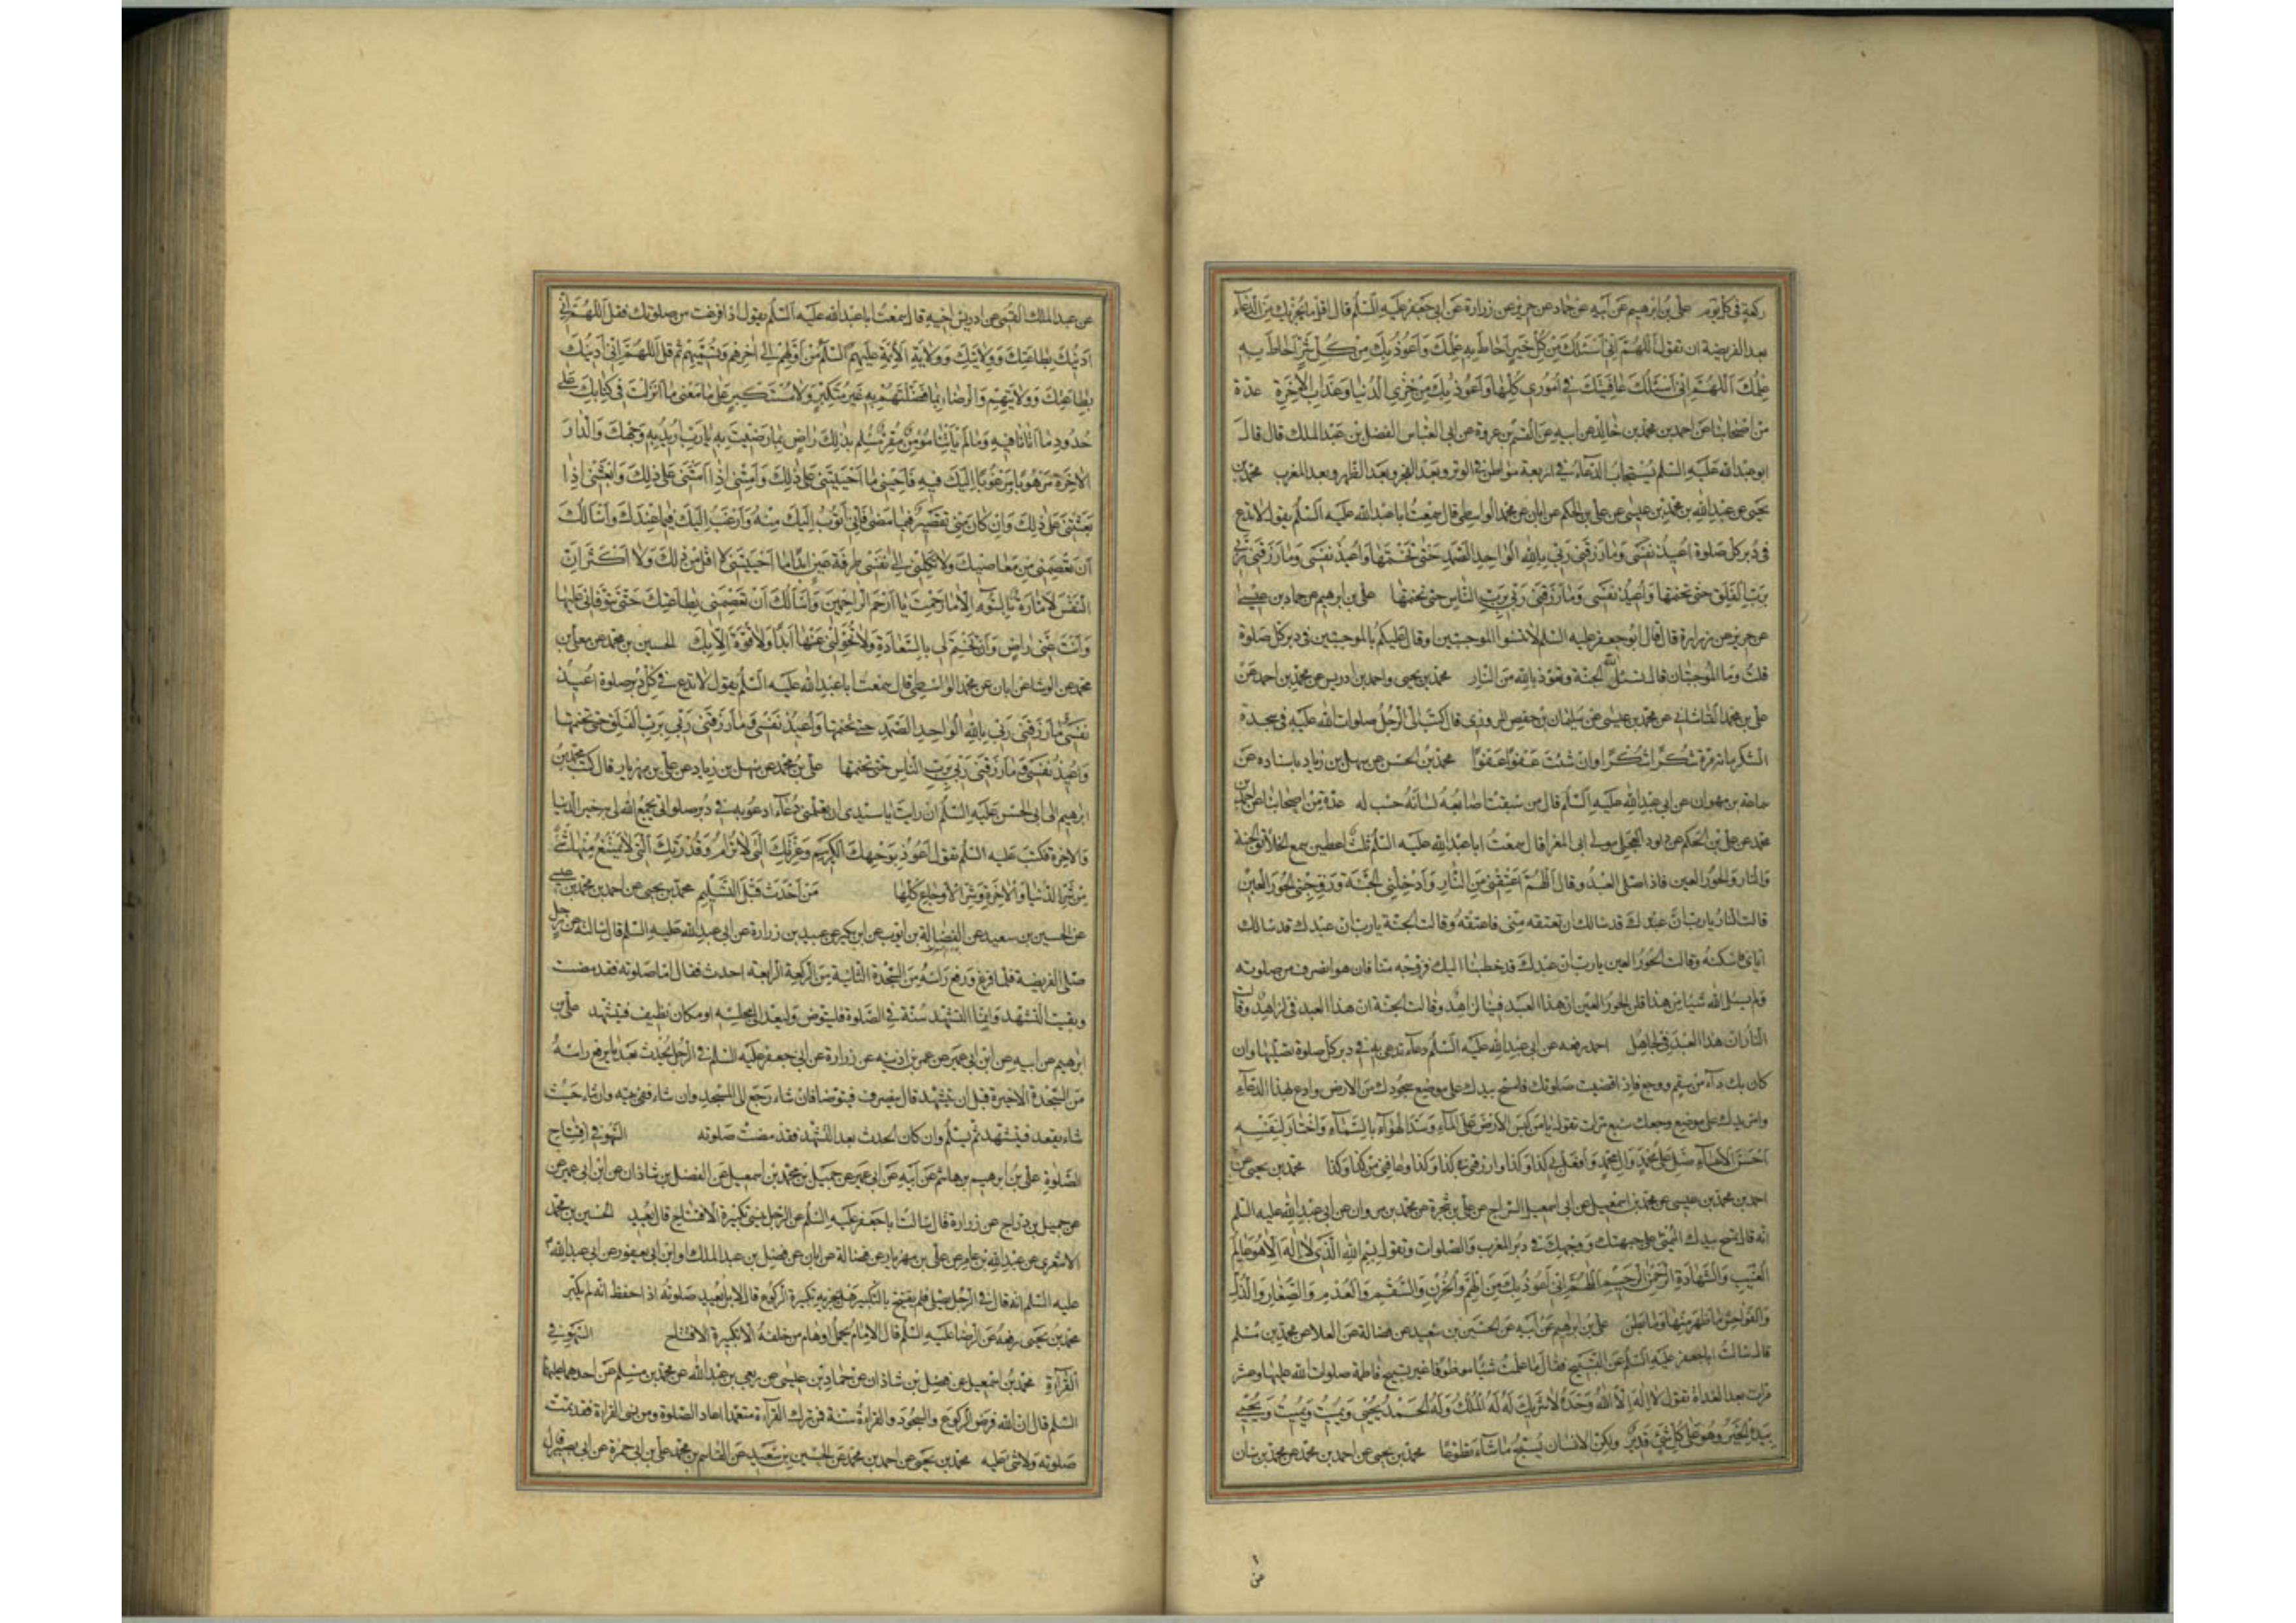 ركعة في كل يوم علي بن ابرهيم عن ابيه عن حماد عن حريز عن زرارة عن ابي جعفر عليه السلم قال اقل ما يجزيك من الدعاء
بعد الفريضة ان تقول اللهم اني اسئلك من كل خير احاط به علمك واعوذ بك من كل شر احاط به
علمك اللهم اني اسئلك عافيتك في اموري كلها واعوذ بك من خزي الدنيا وعذاب الاخرة عدة
من اصحابنا عن احمد بن محمد بن خالد عن ابيه عن القسم بن عروة عن ابي العباس الفضل بن عبد الملك قال قال
ابو عبد الله عليه السلم يستجاب الدعاء في اربعة مواطن في الوتر وبعد الفجر وبعد الظهر وبعد المغرب محمد بن
يحيى عن عبد الله بن محمد بن عيسى عن علي بن الحكم عن ابان عن محمد الواسطي قال سمعت ابا عبد الله عليه السلم يقول لا تدع
في دبر كل صلوة اعيذ نفسي وما رزقني ربي بالله الواحد الصمد حتى تختمها واعيذ نفسي وما رزقني ربي
برب الفلق حتى تختمها واعيذ نفسي وما رزقني ربي برب الناس حتى تختمها علي بن ابرهيم عن حماد بن عيسى
عن حريز عن زرارة قال قال ابو جعفر عليه السلم لا تنسوا الموجبتين او قال عليكم بالموجبتين في دبر كل صلوة
قلت وما الموجبتان قال تسئل الله الجنة وتعوذ بالله من النار محمد بن يحيى واحمد بن ادريس عن محمد بن احمد عن
علي بن محمد القاساني عن محمد بن عيسى عن سليمان بن حفص المروزي قال كتب الى الرجل صلوات الله عليه في سجدة
الشكر مائة مرة شكرا شكرا وان شئت عفوا عفوا محمد بن الحسن عن سهل بن زياد باسناده عن
ابي عبد الله عليه السلم قال من سبقت اصابعه لسانه حسب له عدة من اصحابنا عن احمد بن
محمد عن علي بن الحكم عن داود العجلي مولى ابي المغرا قال سمعت ابا عبد الله عليه السلم ثلث اعطين سمع الخلائق الجنة
والنار والحور العين فاذا صلى العبد وقال اللهم اعتقني من النار وادخلني الجنة وزوجني الحور العين
قالت النار يا رب ان عبدك قد سالك ان تعتقه مني فاعتقه وقالت الجنة يا رب ان عبدك قد سالك
اياي فاسكنه وقالت الحور العين يا رب ان عبدك قد خطبنا اليك فزوجه منا فان هو انصرف من صلوته
ولم يسئل الله شيئا من هذا قلن الحور العين ان هذا العبد فينا لزاهد وقالت الجنة ان هذا العبد في لزاهد وقالت
النار ان هذا العبد في لجاهل احمد رفعه عن ابي عبد الله عليه السلم دعاء تدعى به في دبر كل صلوة تصليها وان
كان بك داء من سقم ووجع فاذا قضيت صلوتك فامسح بيدك على موضع سجودك من الارض وادع بهذا الدعاء
وامر يدك على موضع وجعك سبع مرات تقول يا من كبس الارض على الماء وسد الهواء بالسماء واختار لنفسه
احسن الاسماء صل على محمد وال محمد وافعل بي كذا وكذا وارزقني كذا وكذا وعافني من كذا وكذا محمد بن يحيى عن
احمد بن محمد بن عيسى عن محمد بن اسمعيل عن ابي اسمعيل السراج عن علي بن شجرة عن محمد بن مروان عن ابي عبد الله عليه السلم
انه قال تمسح بيدك اليمنى على جبهتك ووجهك في دبر المغرب والصلوات وتقول بسم الله الذي لا اله الا هو عالم
الغيب والشهادة الرحمن الرحيم اللهم اني اعوذ بك من الهم والحزن والسقم والعدم والصغار والذل
والفواحش ما ظهر منها وما بطن علي بن ابرهيم عن ابيه عن الحسين بن سعيد عن فضالة عن العلا عن محمد بن مسلم
قال سالت ابا جعفر عليه السلم عن التسبيح فقال ما علمت شيئا موظوفا غير تسبيح فاطمة صلوات الله عليها وعشر
مرات بعد الغداة تقول لا اله الا الله وحده لا شريك له له الملك وله الحمد يحيي ويميت ويميت ويحيي
بيده الخير وهو على كل شيء قدير ولكن الانسان يسبح ما شاء تطوعا محمد بن يحيى عن احمد بن محمد عن محمد بن سنان
عن عبد الملك القمي عن ادريس اخيه قال سمعت ابا عبد الله عليه السلم يقول اذا فرغت من صلوتك فقل اللهم اني
ادينك بطاعتك وولايتك وولاية الائمة عليهم السلم من اولهم الى اخرهم وتسميهم ثم قل اللهم اني ادينك
بطاعتك وولايتهم والرضاء بما فضلتهم به غير متكبر ولا مستكبر على ما معنى ما انزلت في كتابك على
حدود ما اتانا فيه وما لم ياتنا مؤمن مقر مسلم بذلك راض بما رضيت به يا رب اريد به وجهك والدار
الاخرة مرهوبا مرغوبا اليك فيه فاحيني ما احييتني على ذلك وامتني اذا امتني على ذلك وابعثني اذا
بعثتني على ذلك وان كان مني تقصير فيما مضى فاني اتوب اليك منه وارغب اليك فيما عندك واسالك
ان تعصمني من معاصيك ولا تكلني الى نفسي طرفة عين ابدا ما احييتني لا اقل من ذلك ولا اكثر ان
النفس لامارة بالسوء الا ما رحمت يا ارحم الراحمين واسالك ان تعصمني بطاعتك حتى توفاني عليها
وانت عني راض وان تختم لي بالسعادة ولا تحولني عنها ابدا ولا قوة الا بك الحسين بن محمد عن معلى بن
محمد عن الوشا عن ابان عن محمد الواسطي قال سمعت ابا عبد الله عليه السلم يقول لا تدع في كل دبر صلوة اعيذ
نفسي وما رزقني ربي بالله الواحد الصمد حتى تختمها واعيذ نفسي وما رزقني ربي برب الفلق حتى تختمها
واعيذ نفسي وما رزقني ربي برب الناس حتى تختمها علي بن محمد عن سهل بن زياد عن علي بن مهزيار قال كتب محمد بن
ابرهيم الى ابي الحسن عليه السلم ان رايت يا سيدي ان تعلمني دعاء ادعو به في دبر صلواتي يجمع الله لي به خير الدنيا
والاخرة فكتب عليه السلم تقول اعوذ بوجهك الكريم وعزتك التي لا ترام وقدرتك التي لا يمتنع منها شيء
من شر الدنيا والاخرة وشر الاوجاع كلها من احدث قبل التسليم محمد بن يحيى عن احمد بن محمد بن عيسى
عن الحسين بن سعيد عن الفضالة بن ايوب عن ابن بكير عن عبيد بن زرارة عن ابي عبد الله عليه السلم قال سالته عن رجل
صلى الفريضة فلما فرغ ورفع راسه من السجدة الثانية من الركعة الرابعة احدث فقال اما صلوته فقد مضت
وبقيت التشهد وانما التشهد سنة في الصلوة فليتوض وليعد الى مجلسه او مكان نظيف فيتشهد علي بن
ابرهيم عن ابيه عن ابن ابي عمير عن عمر بن اذينه عن زرارة عن ابي جعفر عليه السلم في الرجل يحدث بعد ما يرفع راسه
من السجدة الاخيرة قبل ان يتشهد قال ينصرف فيتوضا فان شاء رجع الى المسجد وان شاء ففي بيته وان شاء حيث
شاء يقعد فيتشهد ثم يسلم وان كان الحدث بعد التشهد فقد مضت صلوته السهو في افتتاح
الصلوة علي بن ابرهيم بن هاشم عن ابيه عن ابن ابي عمير عن جميل بن محمد بن اسمعيل عن الفضل بن شاذان عن ابن ابي عمير عن
عن جميل بن دراج عن زرارة قال سالت ابا جعفر عليه السلم عن الرجل ينسى تكبيرة الافتتاح قال يعيد الحسين بن محمد
الاشعري عن عبد الله بن عامر عن علي بن مهزيار عن فضالة عن ابان عن فضل بن عبد الملك او ابن ابي يعفور عن ابي عبد الله
عليه السلم انه قال في الرجل يصلي فلم يفتتح بالتكبير هل يجزيه تكبيرة الركوع قال لا بل يعيد صلوته اذا حفظ انه لم يكبر
محمد بن يحيى رفعه عن الرضا عليه السلم قال الامام يحمل اوهام من خلفه الا تكبيرة الافتتاح السهو في
القراءة محمد بن اسمعيل عن فضل بن شاذان عن حماد بن عيسى عن ربعي بن عبد الله عن محمد بن مسلم عن احدهما عليهما
السلم قال ان الله فرض الركوع والسجود والقراءة سنة فمن ترك القراءة متعمدا اعاد الصلوة ومن نسي القراءة فقد تمت
صلوته ولا شيء عليه محمد بن يحيى عن احمد بن محمد عن الحسين بن سعيد عن القاسم بن محمد علي بن ابي حمزة عن ابي بصير قال